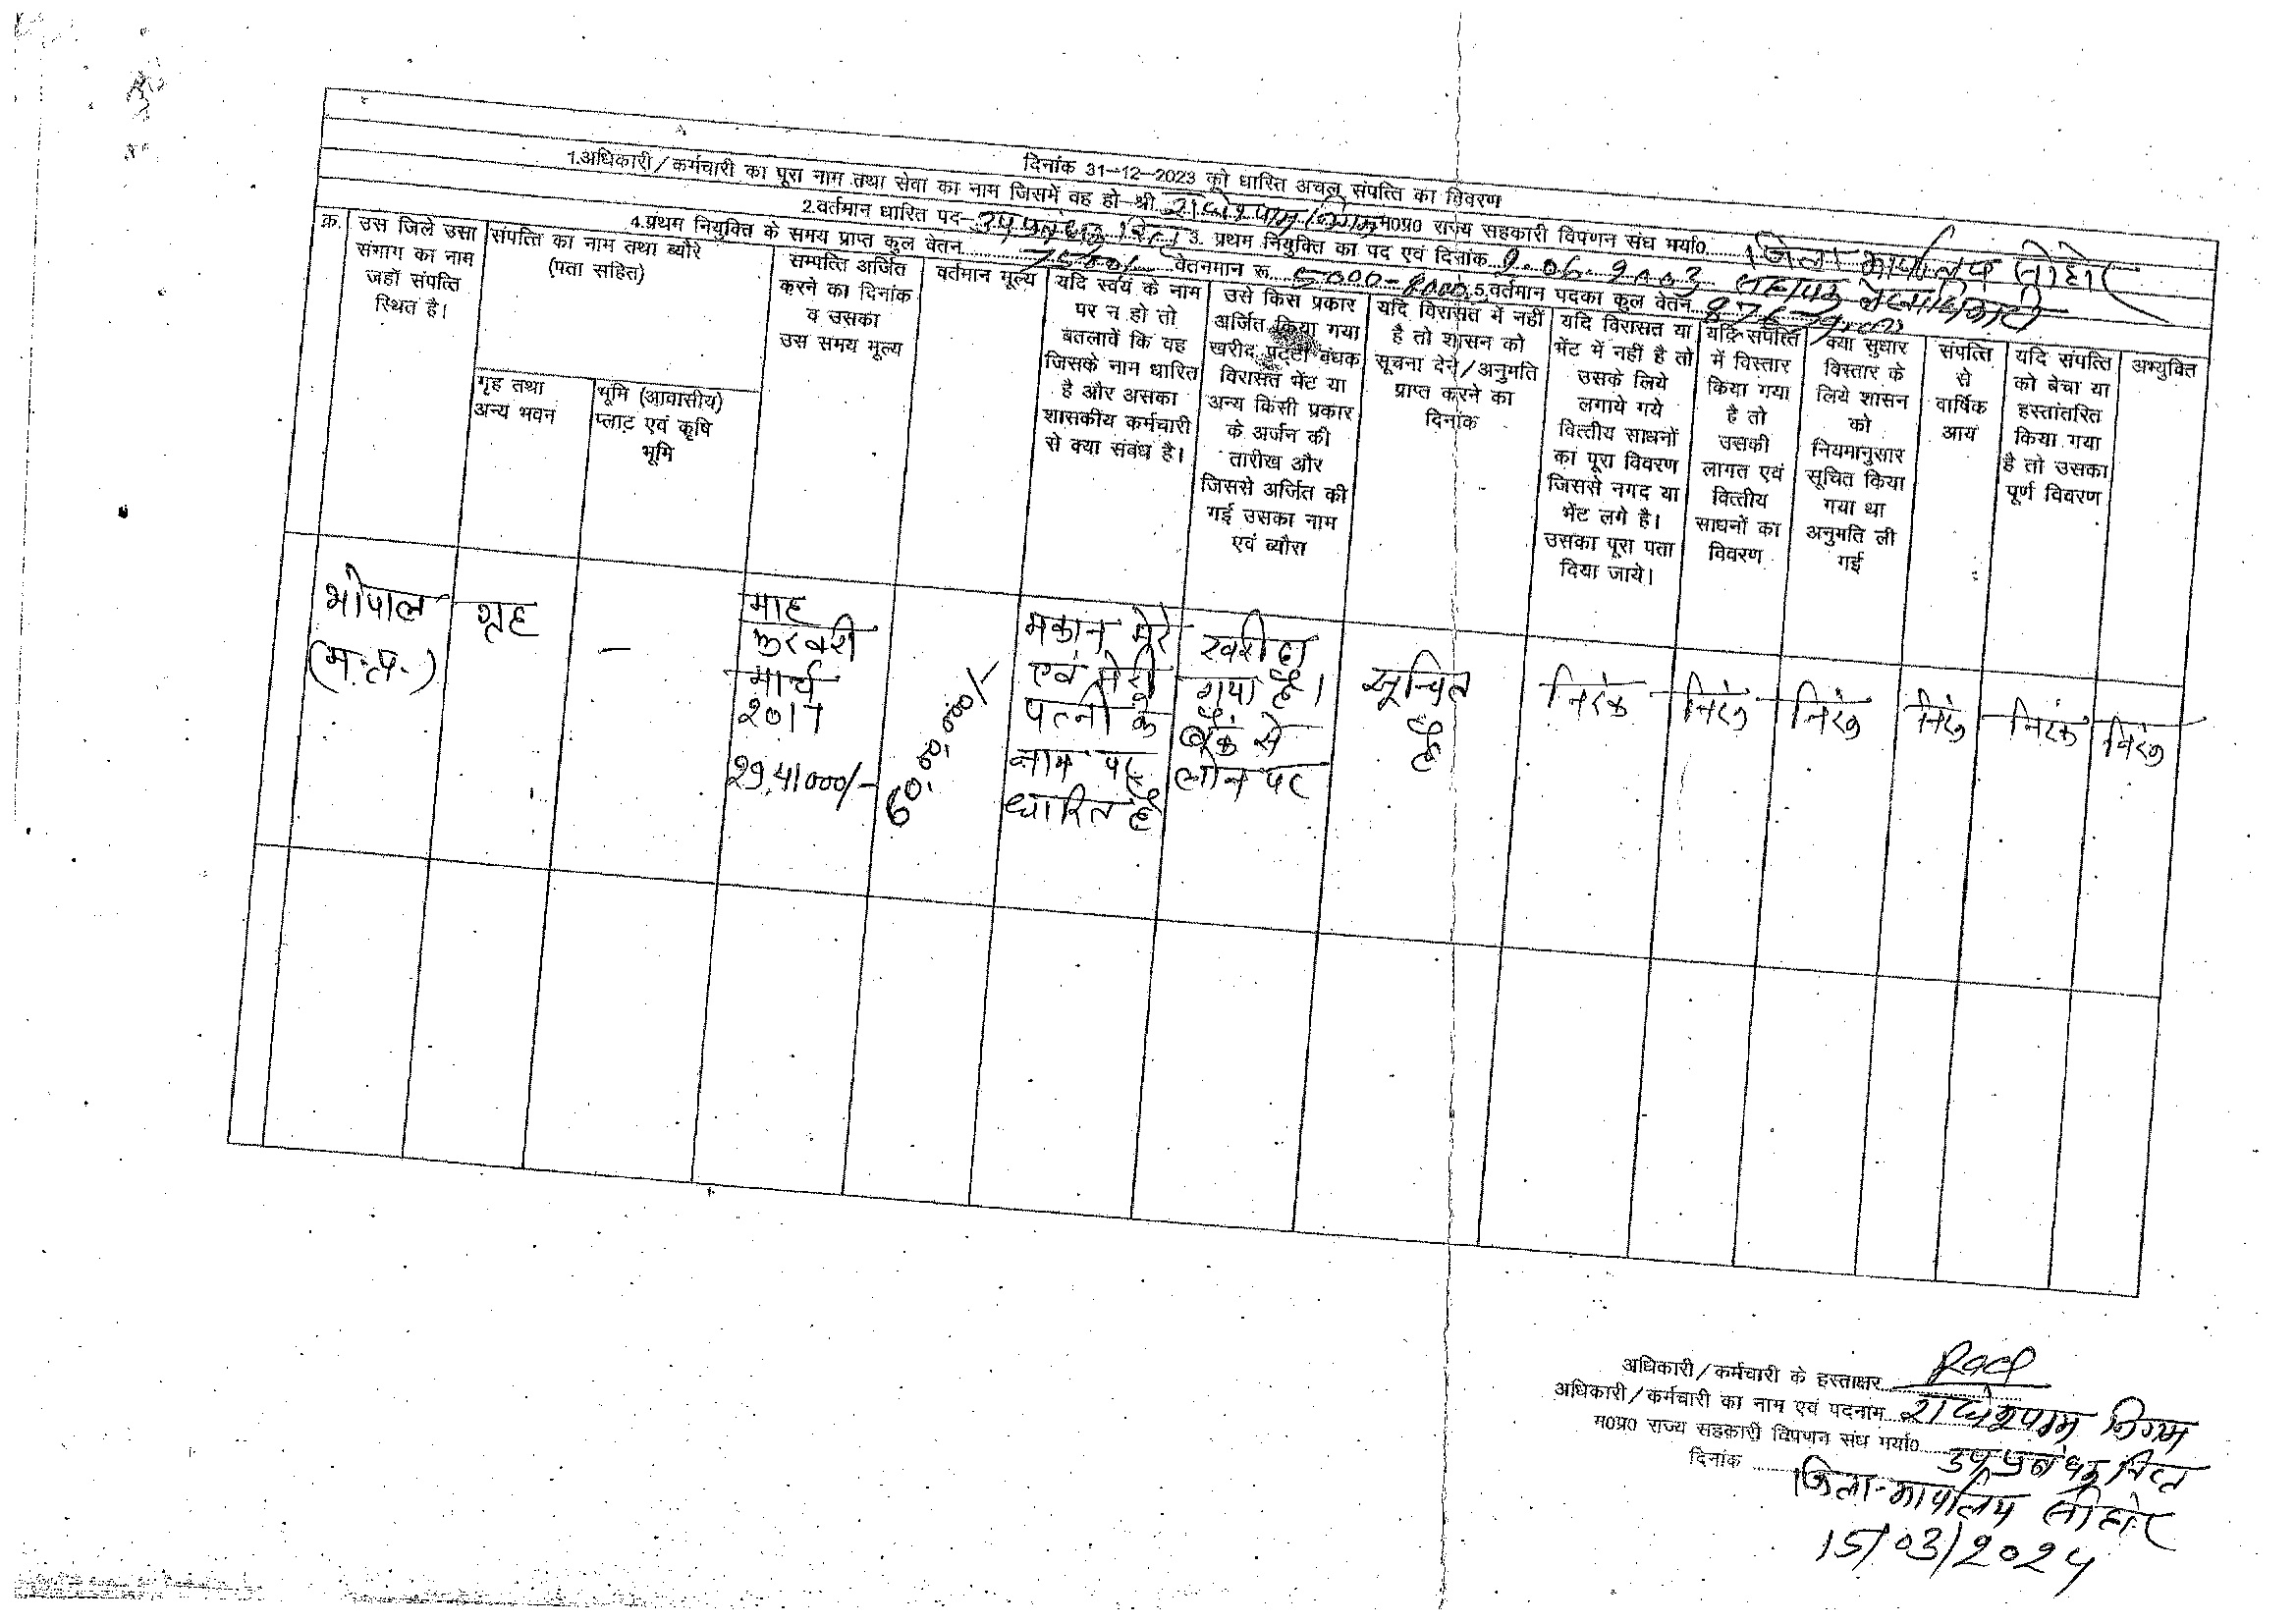 दिनांक 31-12-2023 को धारित अचल संपत्ति का विवरण
1.अधिकारी/कर्मचारी का पूरा नाम तथा सेवा का नाम जिसमें वह हो श्री राधेश्याम निगम म0प्र0 राज्य सहकारी विपणन संघ मर्या0 जिला कार्यालय सीहोर
2.वर्तमान धारित पद उप प्रबंधक वित्त 3. प्रथम नियुक्ति का पद एवं दिनांक 9.06.2003 सहायक लेखाधिकारी
4.प्रथम नियुक्ति के समय प्राप्त कुल वेतन वेतनमान रू. 5000-8000 5.वर्तमान पदका कुल वेतन
क्र.
उस जिले उसा संभाग का नाम जहाँ संपत्ति स्थित है।
संपत्ति का नाम तथा ब्यौरे (पता सहित)
गृह तथा अन्य भवन
भूमि (आवासीय) प्लाट एवं कृषि भूमि
सम्पत्ति अर्जित करने का दिनांक व उसका उस समय मूल्य
वर्तमान मूल्य
यदि स्वयं के नाम पर न हो तो बतलावें कि वह जिसके नाम धारित है और असका शासकीय कर्मचारी से क्या संबंध है।
उसे किस प्रकार अर्जित किया गया खरीद पट्टा बंधक विरासत भेंट या अन्य किसी प्रकार के अर्जन की तारीख और जिससे अर्जित की गई उसका नाम एवं ब्यौरा
यदि विरासत में नहीं है तो शासन को सूचना देने/अनुमति प्राप्त करने का दिनांक
यदि विरासत या भेंट में नहीं है तो उसके लिये लगाये गये वित्तीय साधनों का पूरा विवरण जिससे नगद या भेंट लगे है। उसका पूरा पता दिया जाये।
यदि संपत्ति में विस्तार किया गया है तो उसकी लागत एवं वित्तीय साधनों का विवरण
क्या सुधार विस्तार के लिये शासन को नियमानुसार सूचित किया गया था अनुमति ली गई
संपत्ति से वार्षिक आय
यदि संपत्ति को बेचा या हस्तांतरित किया गया है तो उसका पूर्ण विवरण
अभ्युक्ति
भोपाल (म.प्र.)
गृह
–
माह फरवरी मार्च 2017 29,41000/-
60,50,000/-
मकान मेरे एवं मेरी पत्नी के नाम पर धारित है
खरीदा गया है। बैंक से लोन पर
सूचित है
निरंक
निरंक
निरंक
निरंक
निरंक
निरंक
अधिकारी/कर्मचारी के हस्ताक्षर
अधिकारी/कर्मचारी का नाम एवं पदनाम राधेश्याम निगम
म0प्र0 राज्य सहकारी विपणन संघ मर्या0 उप प्रबंधक वित्त
दिनांक जिला-कार्यालय सीहोर
15/03/2024